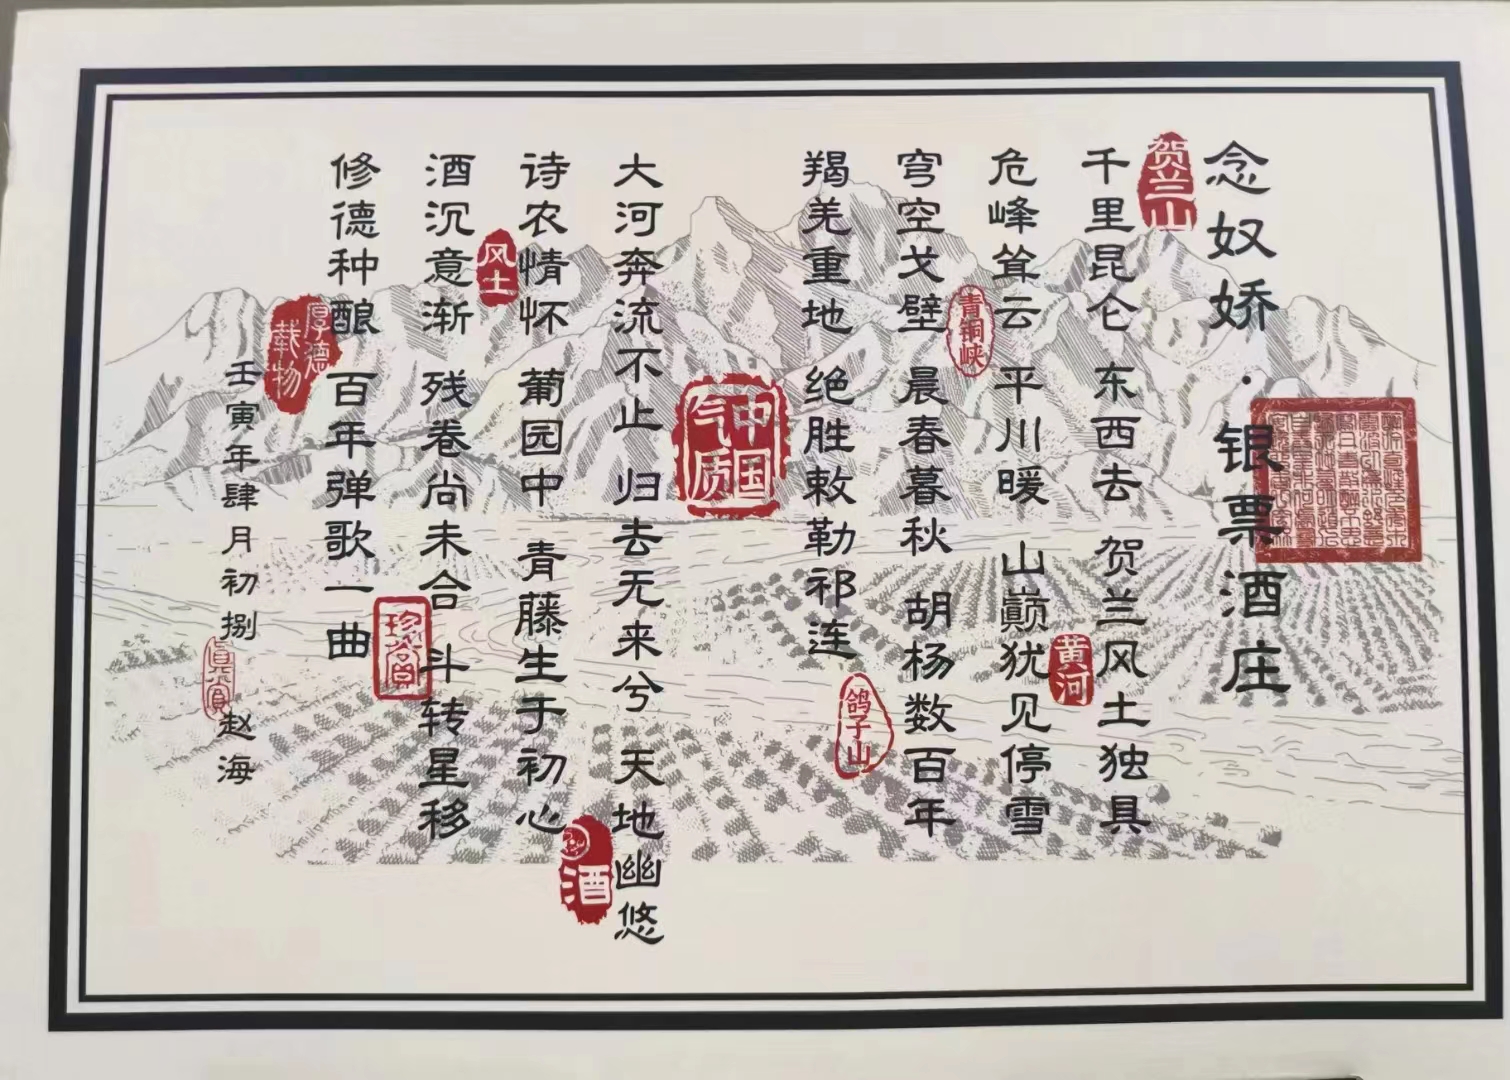 念奴娇·银票酒庄
贺兰山
千里昆仑 东西去 贺兰风土独具
黄河
危峰耸云 平川暖 山巅犹见停雪
青铜峡
穹空戈壁 晨春暮秋 胡杨数百年
鸽子山
羯羌重地 绝胜敕勒祁连
中国气质
大河奔流不止 归去无来兮 天地幽悠
酒
诗农情怀 葡园中 青藤生于初心
风土
酒沉意渐 残卷尚未合 斗转星移
修德种酿 百年弹歌一曲
厚德载物
壬寅年肆月初捌 赵海